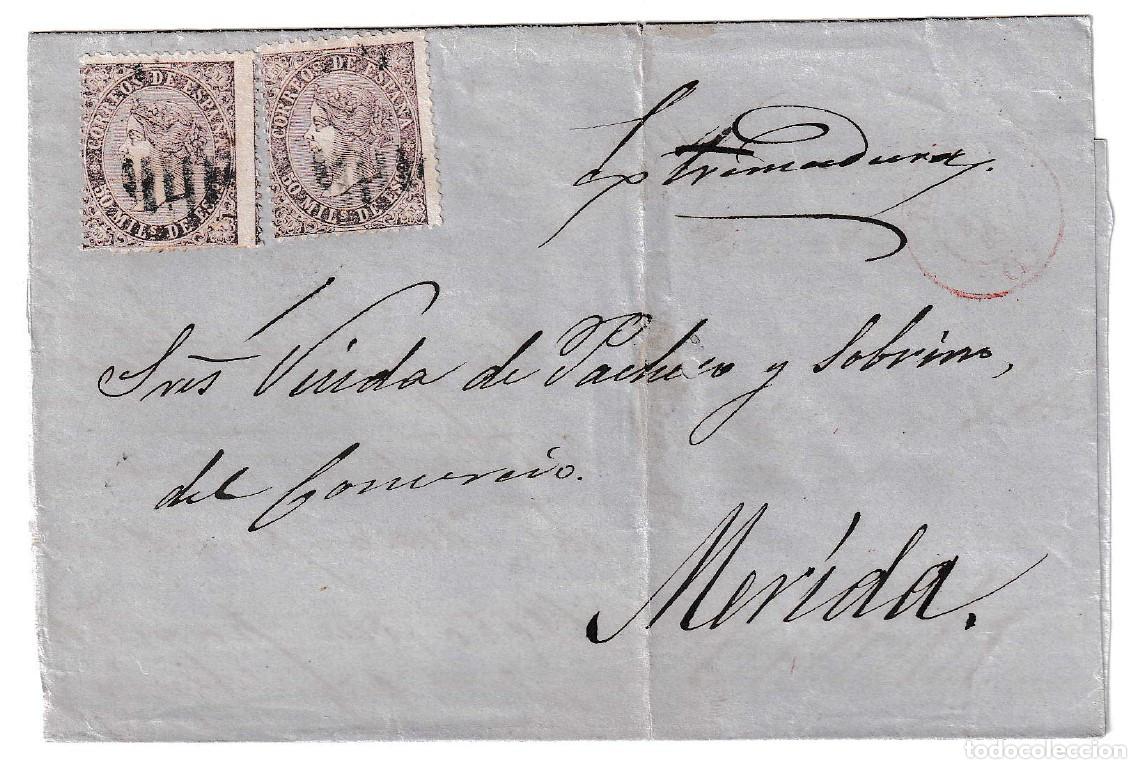 CORREOS DE ESPAÑA
50 MILS DE ES
CORREOS DE ESPAÑA
50 MILS DE ES
Extremadura.
Sres Viuda de Pacheco y Sobrino,
del Comercio.
Merída.
todocoleccion